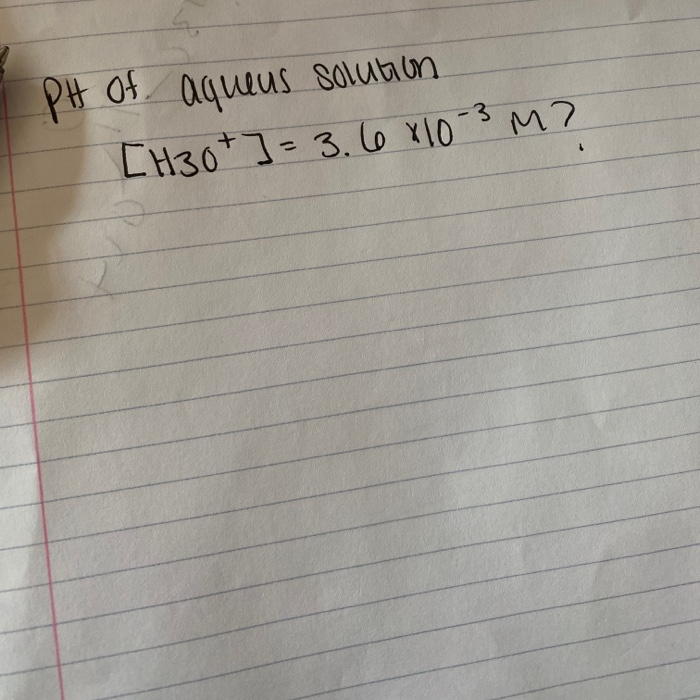 PH Of aqueus solution
[H3O⁺] = 3.6 x10⁻³ M?